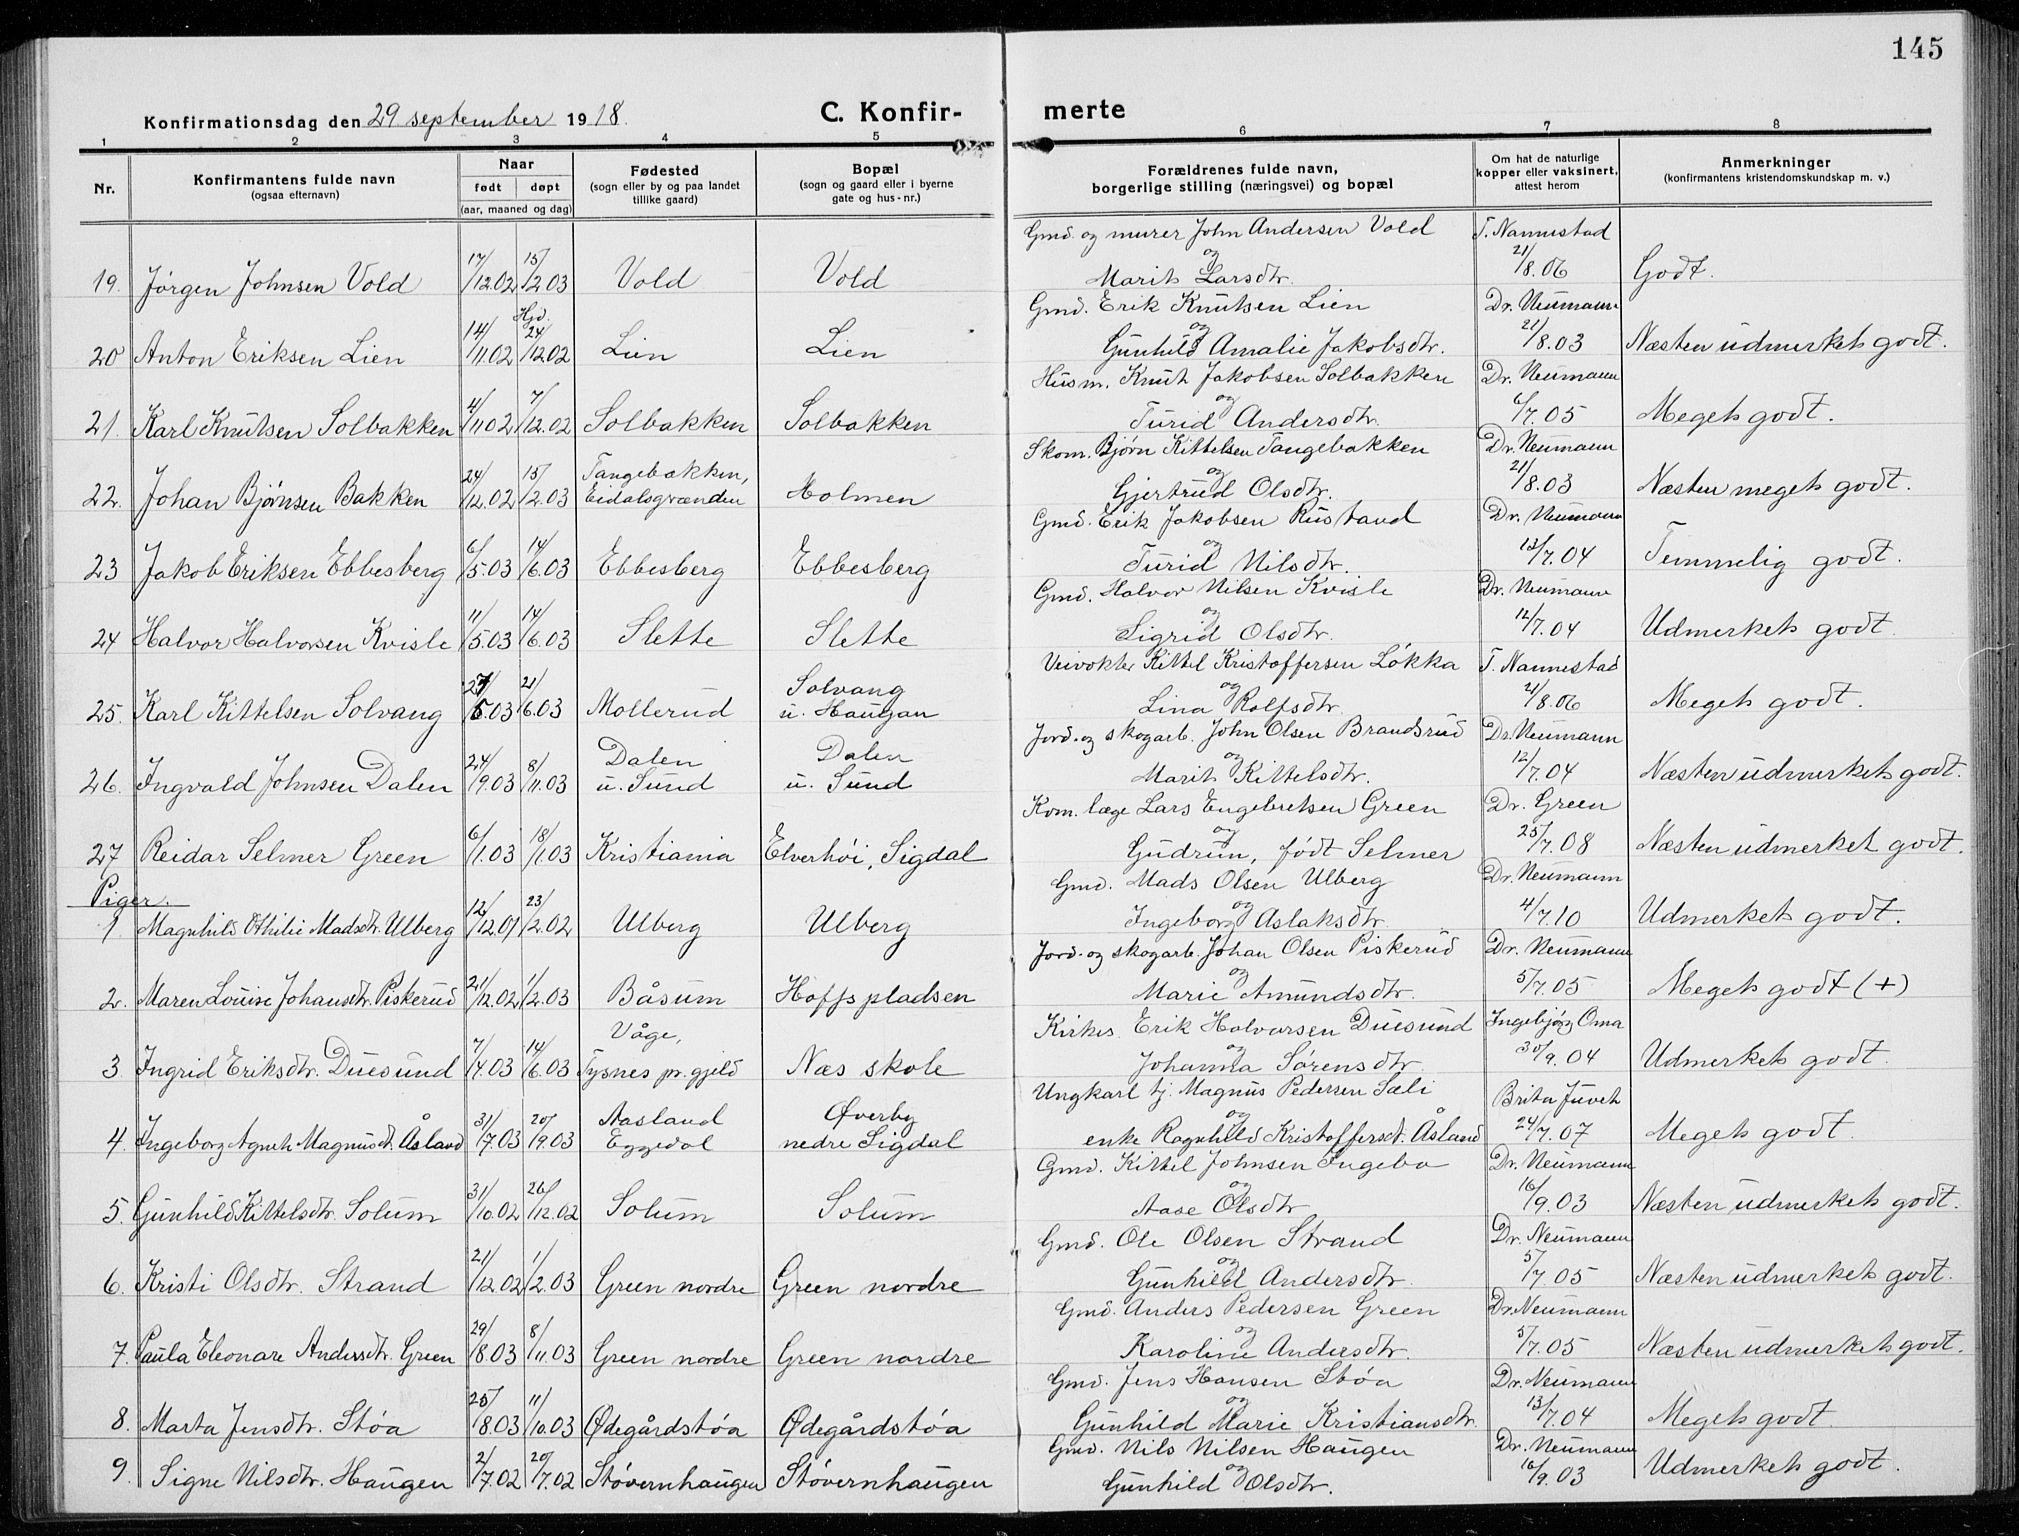 145
Konfirmationsdag den 29 september 1918. C. Konfirmerte
1 2 3 4 5 6 7 8
Nr. | Konfirmantens fulde navn (ogsaa efternavn) | Naar født døpt (aar, maaned og dag) | Fødested (sogn eller by og paa landet tillike gaard) | Bopæl (sogn og gaard eller i byerne gate og hus-nr.) | Forældrenes fulde navn, borgerlige stilling (næringsvei) og bopæl | Om hat de naturlige kopper eller vaksinert, attest herom | Anmerkninger (konfirmantens kristendomskundskap m. v.)
19. Jørgen Johnsen Vold | 17/12.02 | 15/2.03 | Vold | Vold | Gmd. og murer John Andersen Vold og Marit Larsdtr. | T. Nannestad 21/8.06 | Godt.
20 Anton Eriksen Lien | 14/11.02 | Hjd. 24/12.02 | Lien | Lien | Gmd. Erik Knutsen Lien og Gunhild Amalie Jakobsdtr. | Dr. Neumann 21/8.03 | Næsten udmerkets godt.
21. Karl Knutsen Solbakken | 4/11.02 | 7/12.02 | Solbakken | Solbakken | Husm. Knut Jakobsen Solbakken og Turid Andersdtr. | Dr. Neumann 6/7.05 | Megets godt.
22. Johan Bjørnsen Bakken | 24/12.02 | 15/2.03 | Tangebakken, Eidalsgrænden | Holmen | Skom. Bjørn Kittelsen Tangebakken og Gjertrud Olsdtr. | Dr. Neumann 21/8.03 | Næsten megets godt.
23 Jakob Eriksen Ebbesberg | 6/5.03 | 14/6.03 | Ebbesberg | Ebbesberg | Gmd. Erik Jakobsen Rustand og Turid Nilsdtr. | Dr. Neumann 13/7.04 | Temmelig godt.
24 Halvor Halvorsen Kvisle | 11/5.03 | 14/6.03 | Slette | Slette | Gmd. Halvor Nilsen Kvisle og Sigrid Olsdtr. | Dr. Neumann 12/7.04 | Udmerkets godt.
25. Karl Kittelsen Solvang | 5.03 | 21/6.03 | Mollerud | Solvang u. Haugan | Veivokter Kittel Kristoffersen Løkka og Lina Rolfsdtr. | T. Nannestad 21/8.06 | Megets godt.
26. Ingvald Johnsen Dalen | 24/9.03 | 8/11.03 | Dalen u. Sund | Dalen u. Sund | Jord. og skogarb. John Olsen Brandsrud og Marit Kittelsdtr. | Dr. Neumann 12/7.04 | Næsten udmerkets godt.
27 Reidar Selmer Green | 6/1.03 | 18/1.03 | Kristiania | Elverhöi, Sigdal | Kom. læge Lars Engebretsen Green og Gudrun, født Selmer | Dr. Green 25/7.08 | Næsten udmerket godt.
Piger.
1 Magnhild Othilie Madsdtr. Ulberg | 12/12.01 | 23/2.02 | Ulberg | Ulberg | Gmd. Mads Olsen Ulberg og Ingeborg Aslaksdtr. | Dr. Neumann 4/7.10 | Udmerkets godt.
2. Maren Louise Johansdtr. Piskerud | 21/12.02 | 1/2.03 | Båsum | Hoffspladsen | Jord. og skogarb. Johan Olsen Piskerud og Marie Amundsdtr. | Dr. Neumann 5/7.05 | Megets godt (+)
3. Ingrid Eriksdtr. Duesund | 7/4.03 | 14/6.03 | Våge, Tysnes pr.gjeld | Næs skole | Kirkes. Erik Halvorsen Duesund og Johanna Sørensdtr. | Ingebjørg Oma 30/9.04 | Udmerkets godt.
4. Ingeborg Agnete Magnusdt. Åsland | 31/7.03 | 20/9.03 | Aasland Eggedal | Øverby nedre Sigdal | Ungkarl tj. Magnus Pedersen Sæli og enke Ragnhild Kristoffersdt. Åsland | Brita Juveth 24/7.07 | Megets godt.
5. Gunhild Kittelsdtr. Solum | 31/10.02 | 26/12.02 | Solum | Solum | Gmd. Kittel Johnsen Ingebo og Aase Olsdtr. | Dr. Neumann 16/9.03 | Næsten udmerkets godt.
6. Kristi Olsdtr. Strand | 21/12.02 | 1/2.03 | Green nordre | Green nordre | Gmd. Ole Olsen Strand og Gunhild Andersdtr. | Dr. Neumann 5/7.05 | Næsten udmerkets godt.
7. Paula Eleonare Andersdtr. Green | 29/8.03 | 8/11.03 | Green nordre | Green nordre | Gmd. Anders Pedersen Green og Karoline Andersdtr. | Dr. Neumann 5/7.05 | Næsten udmerkets godt.
8. Marta Jensdtr. Støa | 25/8.03 | 11/10.03 | Ødegårdstøa | Ødegårdstøa | Gmd. Jens Hansen Støa og Gunhild Marie Kristiansdtr. | Dr. Neumann 13/7.04 | Megets godt
9. Signe Nilsdtr. Haugen | 2/7.02 | 20/7.02 | Støvernhaugen | Støvernhaugen | Gmd. Nils Nilsen Haugen og Gunhild Olsdtr. | Dr. Neumann 16/9.03 | Udmerkets godt.